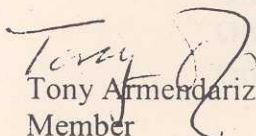 Tony
Tony Armendariz
Member